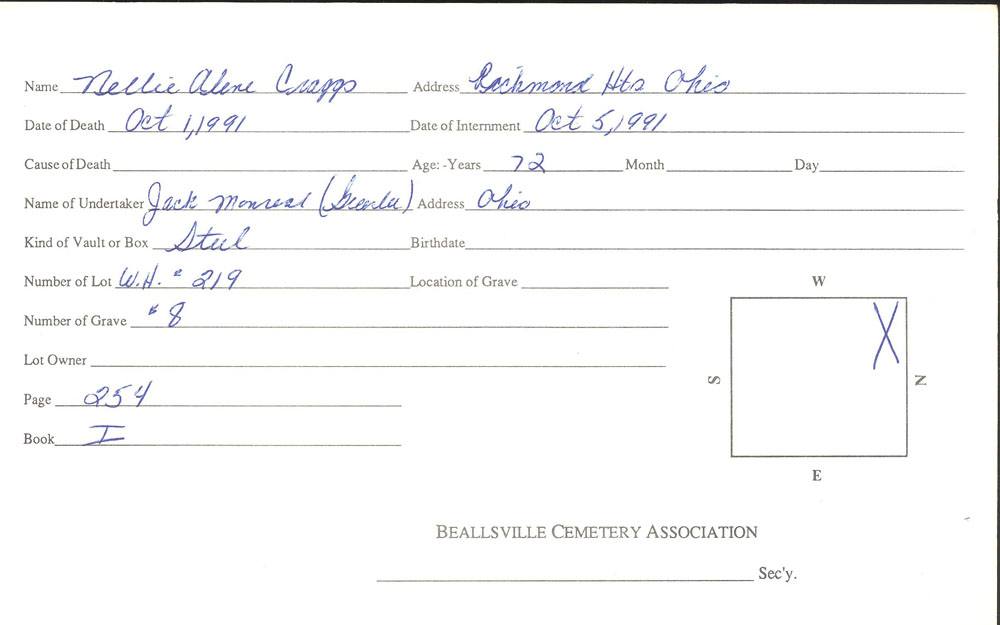 Name Nellie Alene Craggs Address Richmond Hts Ohio
Date of Death Oct 1, 1991 Date of Internment Oct 5, 1991
Cause of Death Age: -Years 72 Month Day
Name of Undertaker Jack Monreal ( ) Address Ohio
Kind of Vault or Box Steel Birthdate
Number of Lot W.H. # 219 Location of Grave
Number of Grave # 8
Lot Owner
Page 254
Book I
W
X
S
N
E
BEALLSVILLE CEMETERY ASSOCIATION
Sec'y.